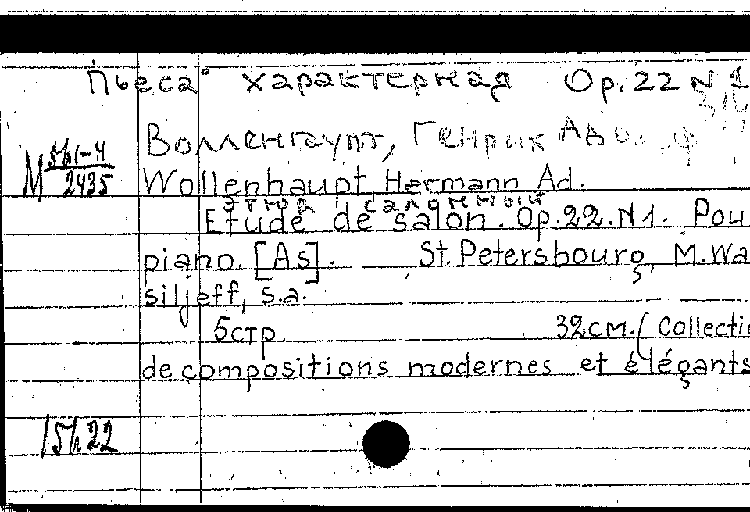 Пьеса характерная Op. 22 N 1
Волленгаупт, Генрик Адо
М 561-4
2435
Wollenhaupt Hermann Ad.
этюд салонный
Etude de salon. Op. 22. N1. Pou
piano. [As]. St. Petersbourg, M. Wa
siljeff, s.a.
5стр 32см. (Collectio
de compositions modernes et élégants